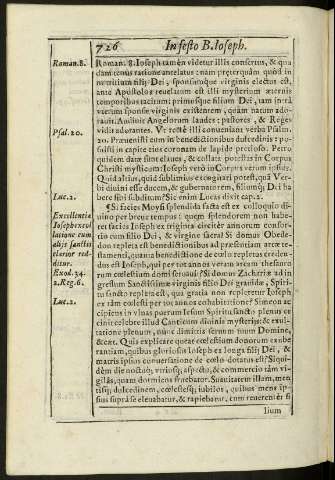 726 In festo B. Ioseph.
Roman. 8.
Roman. 8. Ioseph tamen videtur illis consertus, & qua
dam cœnus ratione antelatus: nam præterquàm quòd in
nutritium filij Dei, sponsumque virginis electus est,
ante Apostolos reuelatum est illi mysterium æternis
temporibus tacitum; primusque filium Dei, tam intrà
vterum sponsæ virginis existentem, quàm natum ado-
rauit. Audiuit Angelorum laudes: pastores, & Reges
Psal. 20.
vidit adorantes. Vt rectè illi conueniant verba Psalm.
20. Præuenisti eum in benedictionibus dulcedinis: po-
suisti in capite eius coronam de lapide precioso. Petro
quidem datæ sunt claues, & collata potestas in Corpus
Christi mysticum: Ioseph verò in Corpus verum ipsius.
Quid altius, quid sublimius excogitari potest, quàm Ver-
bi diuini esse ducem, & gubernatorem, filiumq; Dei ha
Luc. 2.
bere sibi subditum? Sic enim Lucas dixit cap. 2.
Excellentia
Ioseph ex col
latione cum
alijs sanctis
clarior red-
ditur.
Exod. 34.
2. Reg. 6.
Luc. 2.
¶ Si facies Moysi splendida facta est ex colloquio di-
uino per breue tempus: quem splendorem non habe-
ret facies Ioseph ex triginta circiter annorum consor-
tio cum filio Dei, & virgine matre? Si domus Obede-
don repleta est benedictionibus ad præsentiam arcæ te-
stamenti, quanta benedictione de cœlo repletus creden-
dus est Ioseph, qui per tot annos veram arcam thesauro
rum cœlestium domi seruauit? Si domus Zachariæ ad in
gressum Sanctissimæ virginis filio Dei grauidæ, Spiri-
tu sancto repleta est, qua gratia non repletetur Ioseph
ex tàm cœlesti per tot annos cohabitatione? Simeon ac
cipiens in vlnas puerum Iesum Spiritu sancto plenus ce
cinit celebre illud Canticum diuinis mysterijs: & exul-
tatione plenum, nunc dimittis seruum tuum Domine,
& cæt. Quis explicare queat cœlestium donorum exube
rantiam, quibus gloriosus Ioseph ex longa filij Dei, &
matris ipsius conuersatione de cœlo donatus est? Siqui-
dem die noctúq; vtriusq; aspectu, & commercio tàm vi-
gilās, quàm dormiens fruebatur. Suauitatem illam, men
tisq; dulcedinem, cœlestesq; iubilos, quibus mens ip-
sius supra se eleuabatur, & rapiebatur, cum reuerenter fi
lium